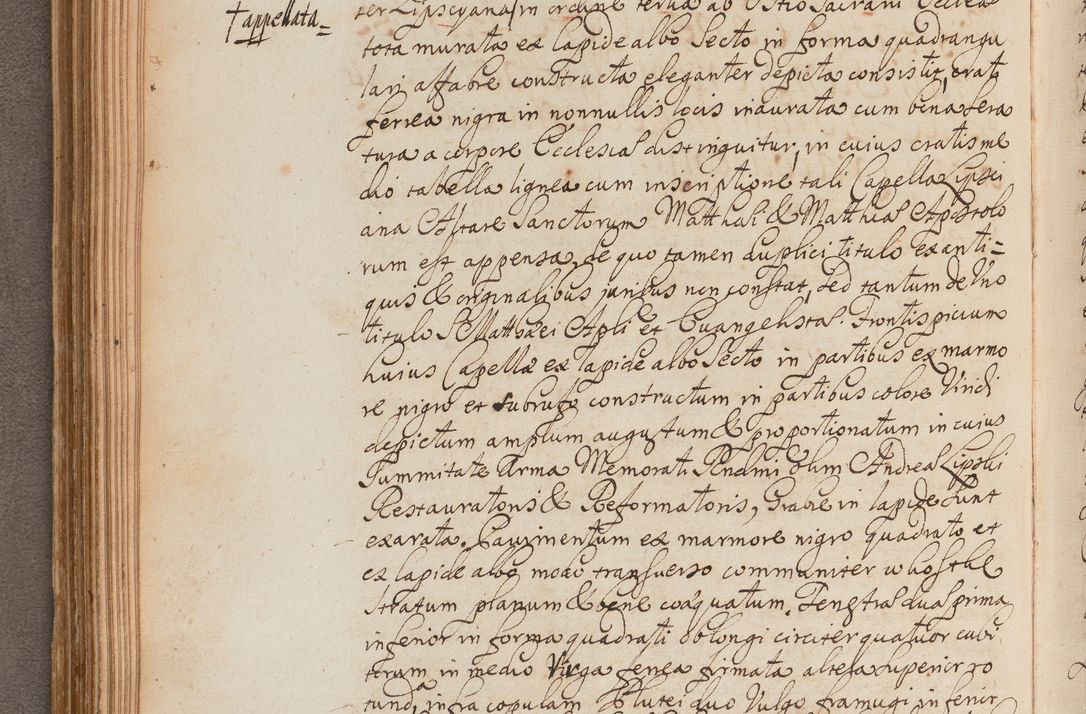 † appellata
ter Lipscyana, in ordine tertia ab Ostio Sacrarii Ecclesiæ
tota murata ex lapide albo Secto in forma quadrangu
lari affabre constructa eleganter depicta consistit, crati
ferrea nigra in nonnullis locis inaurata cum bina sera
tura a corpore Ecclesiæ distinguitur, in cuius cratis me
dio tabella lignea cum inscriptione tali Capella Lipsci
ana Altare Sanctorum Matthæi & Matthiæ Apostolo
rum est appensa, de quo tamen duplici titulo ex anti=
quis & originalibus juribus non constat, sed tantum de Uno
titulo S. Matthæi Apli et Evangelistæ. Frontispicium
huius Capellæ ex lapide albo Secto in partibus ex marmo
re nigro et subrufo constructum in partibus colore Viridi
depictum amplum augustum & proportionatum in cuius
Summitate Arma Memorati Pndmi olim Andreæ Lipski
Restauratoris & Reformatoris, Grabie in lapide sunt
exarata. Pavimentum ex marmore nigro quadrato et
ex lapide albo modo transverso communiter w kostkę
stratum planum & bene coæquatum. Fenestræ duæ prima
inferior in forma quadrati oblongi circiter quatuor cubi
torum in medio Virga ferrea firmata altera superior ro
tunda, infra copulam Plutei duo Vulgo framugi inferior